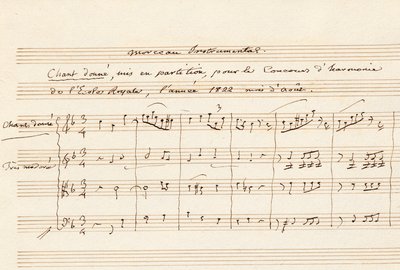 Morceau Instrumental.
Chant donné, mis en partition, pour le Concours d'harmonie
de l'Ecole Royale, l'année 1822 mois d'août.
3
Chant donné
3 4
3 4
3 4
3 4